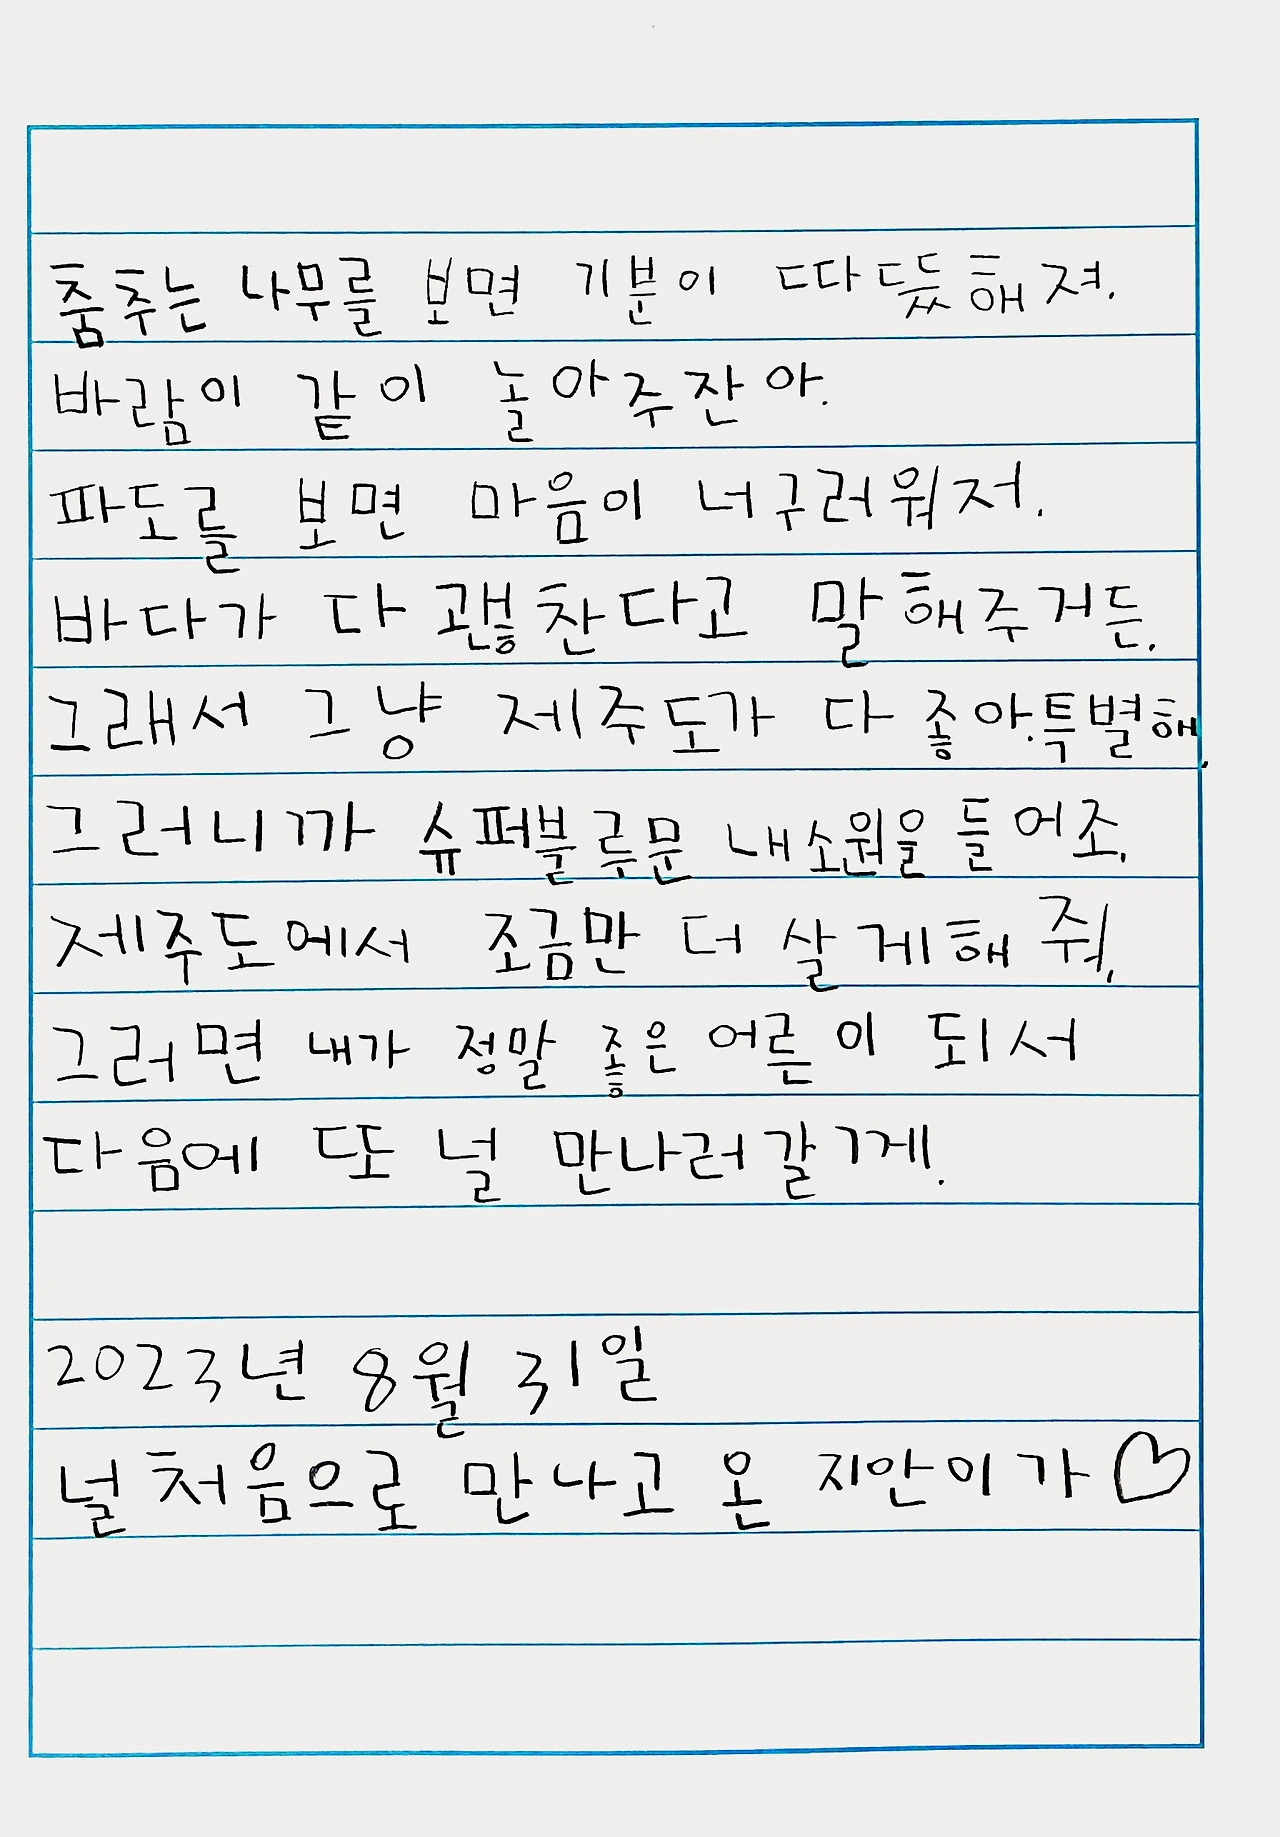 춤추는 나무를 보면 기분이 따뜻해져.
바람이 같이 놀아주잔아.
파도를 보면 마음이 너구러워저.
바다가 다 괞찬다고 말해주거든.
그래서 그냥 제주도가 다 좋아.특별해.
그러니까 슈퍼블루문 내소원을 들어조.
제주도에서 조금만 더 살게해 줘.
그러면 내가 정말 좋은 어른이 되서
다음에 또 널 만나러갈게.
2023년 8월 31일
널처음으로 만나고 온 지안이가♡